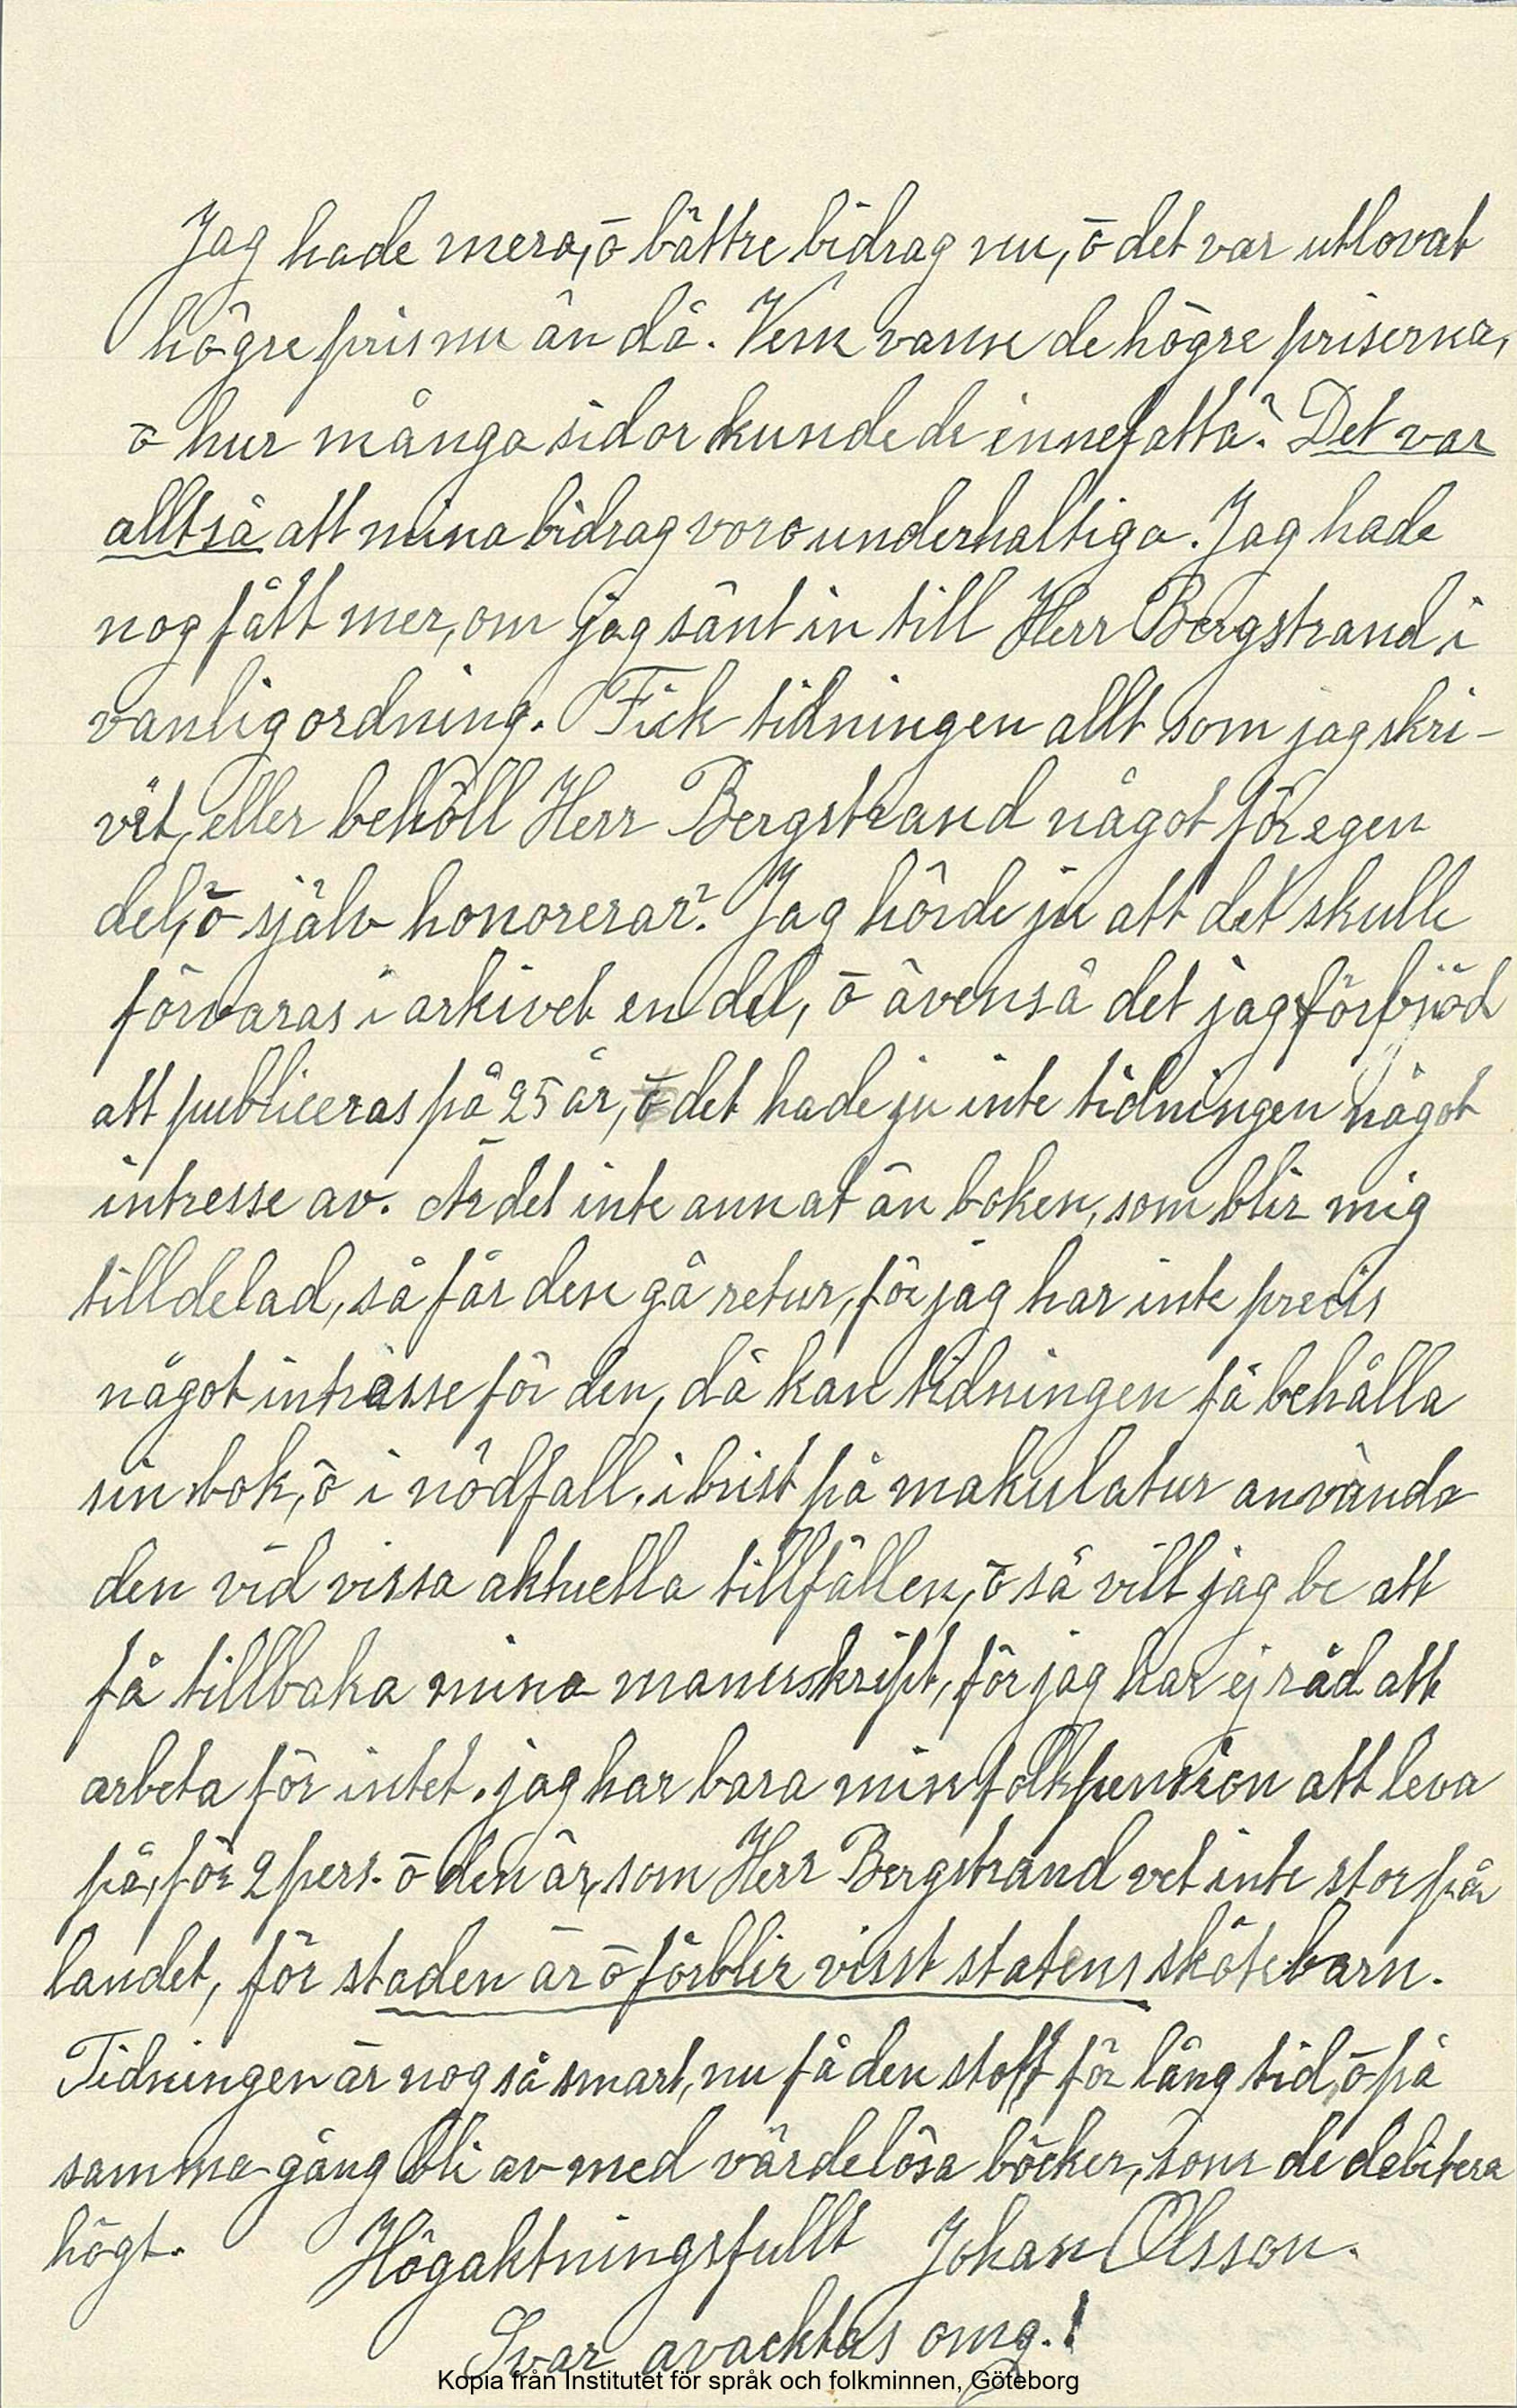 Jag hade mera, ō bättre bidrag nu, ō det var utlovat
högre pris nu än då. Vem vann de högre priserna,
ō hur många sidor kunde de innefatta? Det var
alltså att mina bidrag voro underhaltiga. Jag hade
nog fått mer, om jag sänt in till Herr Bergstrand i
vanlig ordning. Fick tidningen allt som jag skri-
vit, eller behöll Herr Bergstrand något för egen
del, ō själv honorerar? Jag hörde ju att det skulle
förvaras i arkivet en del, ō ävenså det jag förbjöd
att publiceras på 25 år, ō det hade ju inte tidningen något
intresse av. Är det inte annat än boken, som blir mig
tilldelad, så får den gå retur, för jag har inte precis
något inträsse för den, då kan tidningen få behålla
sin bok, ō i nödfall, i brist på makulatur använda
den vid vissa aktuella tillfällen, ō så vill jag be att
få tillbaka mina manuskript, för jag har ej råd att
arbeta för intet. jag har bara min folkpension att leva
på, för 2 pers. ō den är, som Herr Bergstrand vet inte stor på
landet, för staden är ō förblir visst statens skötebarn.
Tidningen är nog så smart, nu få den stoff för lång tid, ō på
samma gång bli av med värdelösa böcker, som de debitera
högt. Högaktningsfullt Johan Olsson.
Svar avacktas omg.!
Kopia från Institutet för språk och folkminnen, Göteborg